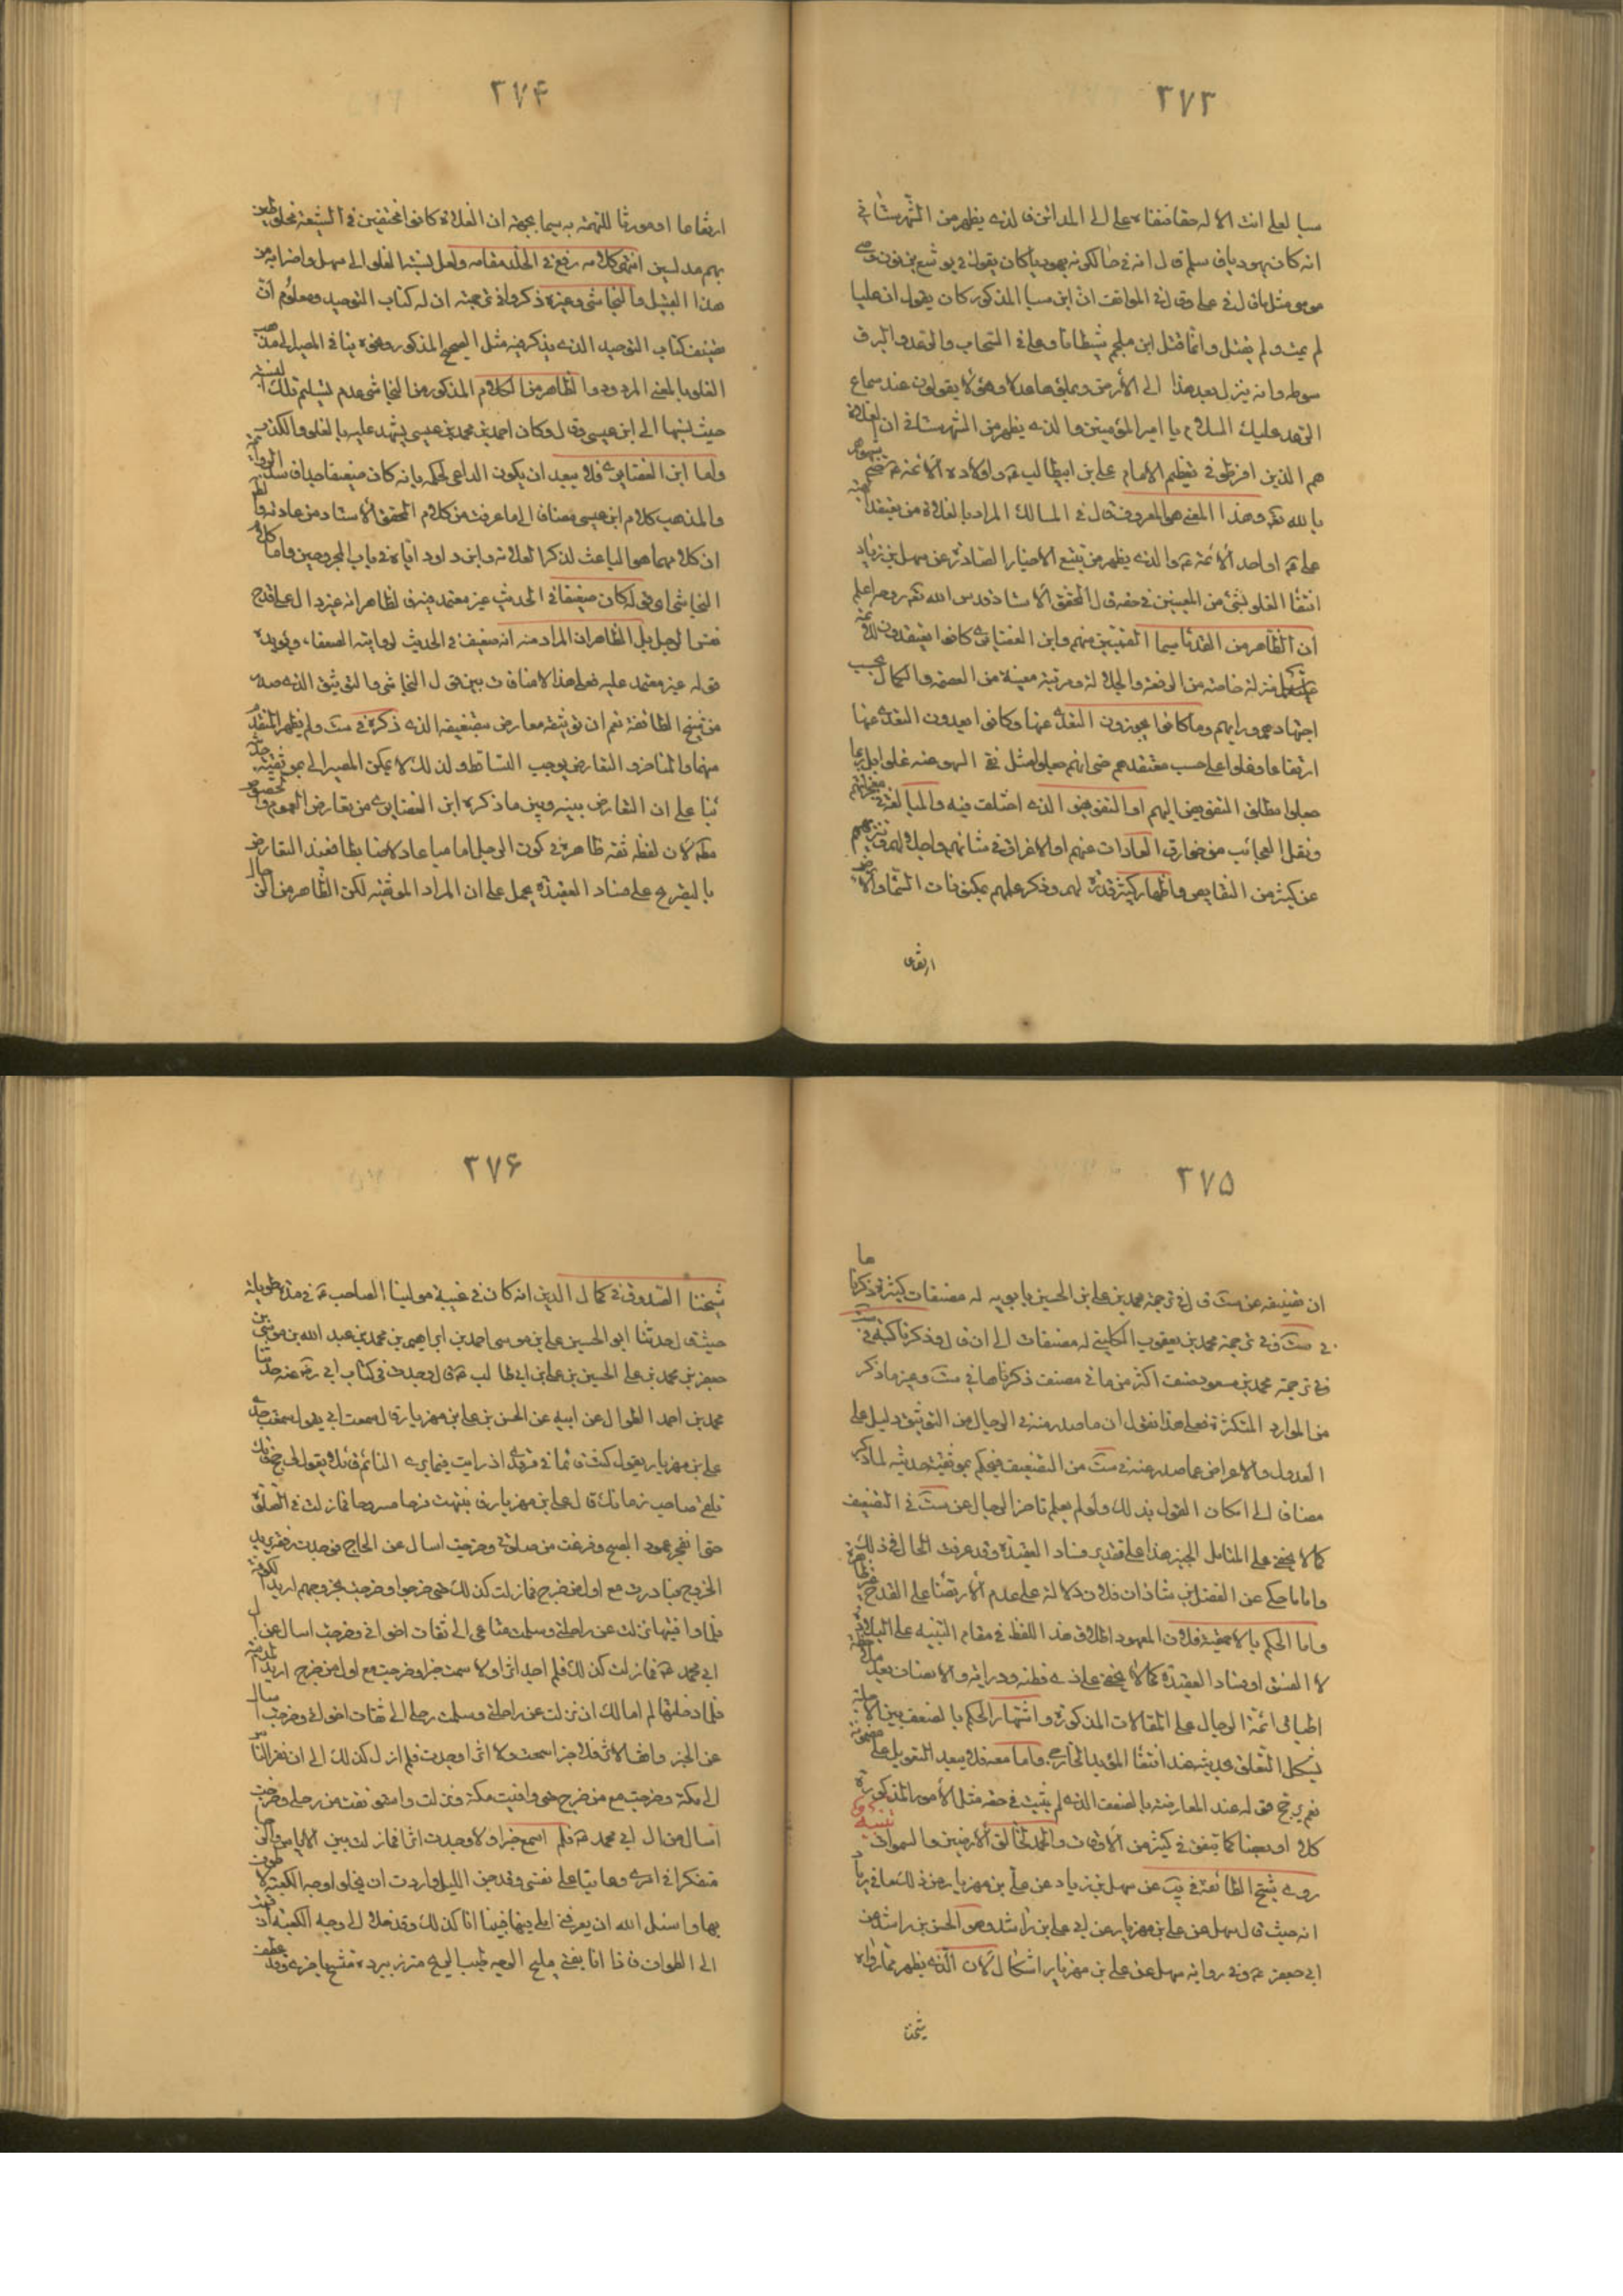 ٢٧٣
سبا لعلي انت الاله حقا فنفاه علي الى المدائن فالذي يظهر من الشهرستاني
انه كان يهوديا فاسلم قال انه في حال كونه يهوديا كان يقول في يوشع بن نون وصي
موسى مثل ما قال في علي وقال في المواقف ان ابن سبا المذكور كان يقول ان عليا
لم يمت ولم يقتل وانما قتل ابن ملجم شيطانا وعلي في السحاب والرعد والبرق
سوطه وانه ينزل بعد هذا الى الأرض ويملئها عدلا وهؤلا يقولون عند سماع
الرعد عليك السلام يا امير المؤمنين والذي يظهر من الشهرستاني ان الغلاة
هم الذين افرطوا في تعظيم الامام علي بن ابيطالب ع واولاده الأئمة ع
بالله تع وهذا المعنى هو المعروف قال في المسالك المراد بالغلاة من يعتقد
علي ع او احد الأئمة ع والذي يظهر من تتبع الاخبار الصادرة عن سهل بن زياد
انتفا الغلو لشئ من المعنيين في حقه قال المحقق الأستاد قدس الله تع روحه اعلم
ان الظاهر من القدما سيما القميين منهم وابن الغضايري كانوا يعتقدون للائمة
منزلة خاصة من الرفعة والجلالة ومرتبة معينة من العصمة والكمال بحسب
اجتهادهم ورايهم وما كانوا يجوزون التعدي عنها وكانوا يعدون التعدي عنها
ارتفاعا وغلوا على حسب معتقدهم حتى انهم جعلوا مثل نفي السهو عنه غلوا بل ربما
جعلوا مطلق التفويض اليهم او التفويض الذي اختلف فيه والمبالغة في معجزاتهم
ونقل العجائب من خوارق العادات عنهم او الاغراق في شانهم واجلالهم وتنزيههم
عن كثير من النقايص واظهار كثير قدرة لهم وذكر علمهم بمكنونات السماء والأرض
ارتفاعا
٢٧۴
ارتفاعا او مورثا للتهمة به سيما بجهة ان الغلاة كانوا مختفين في الشيعة مخلوطين
بهم مدلسين انتهى كلامه رفع في الخلد مقامه ولعل نسبة الغلو الى سهل واضرابه من
هذا القبيل والنجاشي وغيره ذكروا في ترجمته ان له كتاب التوحيد ومعلوم ان
تصنيف كتاب التوحيد الذي يذكر فيه مثل الصحيح المذكور ونحوه ينافي الميل الى مذهب
الغلو بالمعنى المردود والظاهر من الكلام المذكور من النجاشي عدم تسليم تلك النسبة
حيث نسبها الى ابن عيسى وقال وكان احمد بن محمد بن عيسى يشهد عليه بالغلو والكذب
واما ابن الغضايري فلا يبعد ان يكون الداعي لحكمه بانه كان ضعيفا جدا فاسد الرواية
والمذهب كلام ابن عيسى مضافا الى ما عرفت من كلام المحقق الأستاد من عادته والظاهر
ان كلامهما هو الباعث لذكر العلامة وابن داود اياه في باب المجروحين واما كلام
النجاشي اي قوله كان ضعيفا في الحديث غير معتمد فيه فالظاهر انه غير دال على قدح
نفس الرجل بل الظاهر ان المراد منه انه ضعيف في الحديث لروايته الضعفاء ويؤيده
قوله غير معتمد عليه فعلى هذا لا منافات بين قول النجاشي والتوثيق الذي صدر
من شيخ الطائفة نعم ان توثيقه معارض بتضعيفه الذي ذكره في ست ولم يظهر المتقدم
منهما والمتاخر والتعارض يوجب التساقط ولذلك لا يمكن المصير الى موثقية حديثه
بنا على ان التعارض بينه وبين ما ذكره ابن الغضايري من تعارض العموم والخصوص
مطلقا لان لفظة ثقة ظاهرة في كون الرجل اماميا عادلا ضابطا فعند التعارض
بالتصريح على فساد العقيدة يحمل على ان المراد الموثقية لكن الظاهر من حال
٢٧۵
ان تصنيفه عن ست قال في ترجمة محمد بن علي بن الحسين بابويه له مصنفات كثيرة ذكرناها
في ست وفي ترجمة محمد بن يعقوب الكليني له مصنفات الى ان قال وذكرنا كتبه في ست
وفي ترجمة محمد بن مسعود صنف اكثر من مائتي مصنف ذكرناها في ست وغير ما ذكر
من الموارد المتكثرة فعلى هذا نقول ان ما صدر منه في الرجال من التوثيق دليل على
العدول والاعراض عما صدر منه في ست من التضعيف فيحكم بموثقية حديثه لما ذكر
مضافا الى امكان القول بذلك ولو لم يعلم تاخر الرجال عن ست في التصنيف
كما لا يخفى على المتامل الخبير هذا على تقدير فساد العقيدة وقد عرفت الحال في ذلك
واما ما حكي عن الفضل بن شاذان فلان دلالة على عدم الارتضاء على القدح غير ظاهرة
واما الحكم بالاحمقية فلان المعهود اطلاق هذا اللفظ في مقام التنبيه على البلادة
لا الفسق او فساد العقيدة كما لا يخفى على ذي فطنة ودراية والانصاف بعد ملاحظة
اطباق ائمة الرجال على المقالات المذكورة واشتهار الحكم بالضعف بين الاجلة
يشكل التعلق بحديثه عند انتفا المؤيد الخارجي واما معه فلا يبعد التعويل على مضمونه
نعم يرجح قوله عند المعارضة بالضعف الذي لم يثبت في حقه مثل الأمور المذكورة
كلا او بعضا كما يتفق في كثير من الأوقات والحمد لخالق الأرضين والسموات تنبيه
روى شيخ الطائفة في يب عن سهل بن زياد عن علي بن مهزيار من ذلك ما في
انه حيث قال سهل عن علي بن مهزيار عن ابي علي بن راشد وهو الحسن بن راشد عن
ابي جعفر ع وفي رواية سهل عن علي بن مهزيار اشكال لان الذي يظهر مما رواه
شيخنا
٢٧۶
شيخنا الصدوق في كمال الدين انه كان في غيبة مولينا الصاحب ع في مدة طويلة
حيث قال حدثنا ابو الحسين علي بن موسى احمد بن ابراهيم بن محمد بن عبد الله بن موسى بن
جعفر بن محمد بن علي الحسين بن علي ابن ابي طالب ع قال وجدت في كتاب ابي رض عنه حدثنا
محمد بن احمد الطوال عن ابيه عن الحسن بن علي ابن مهزيار قال سمعت ابي يقول سمعت جدي
علي بن مهزيار يقول كنت نائما في مرقدي اذ رايت فيما يرى النائم قائلا يقول لي حج فانك
تلقى صاحب زمانك قال علي بن مهزيار فانتبهت فرحا مسرورا فما زلت في الصلوة
حتى انفجر عمود الصبح وفرغت من صلوتي وخرجت اسال عن الحاج فوجدت رفقة يريد
الخروج فبادرت مع اول من خرج فما زلت كذلك حتى خرجوا وخرجت بخروجهم اريد الكوفة
فلما وافيتها نزلت عن راحلتي وسلمت متاعي الى ثقات اخواني وخرجت اسال عن ال
ابي محمد ع فما زلت كذلك فلم اجد اثرا ولا سمعت خبرا وخرجت مع اول من خرج اريد المدينة
فلما دخلتها لم اتمالك ان نزلت عن راحلتي وسلمت رحلي الى ثقات اخواني وخرجت اسال
عن الخبر واقفو الاثر فلا خبرا سمعت ولا اثرا وجدت فلم ازل كذلك الى ان نفر الناس
الى مكة وخرجت مع من خرج حتى وافيت مكة ونزلت واستوثقت من رحلي وخرجت
اسال عن ال ابي محمد ع فلم اسمع خبرا ولا وجدت اثرا فما زلت بين الاياس والرجا
متفكرا في امري وعاتبا على نفسي وقد جن الليل واردت ان يخلو لي وجه الكعبة لاطوف
بها واسئل الله ان يعرفني املي فيها فبينا انا كذلك وقد خلا لي وجه الكعبة اذ قمت
الى الطواف فاذا انا بفتى مليح الوجه طيب الريح متزر ببردة متشح باخرى وقد عطف